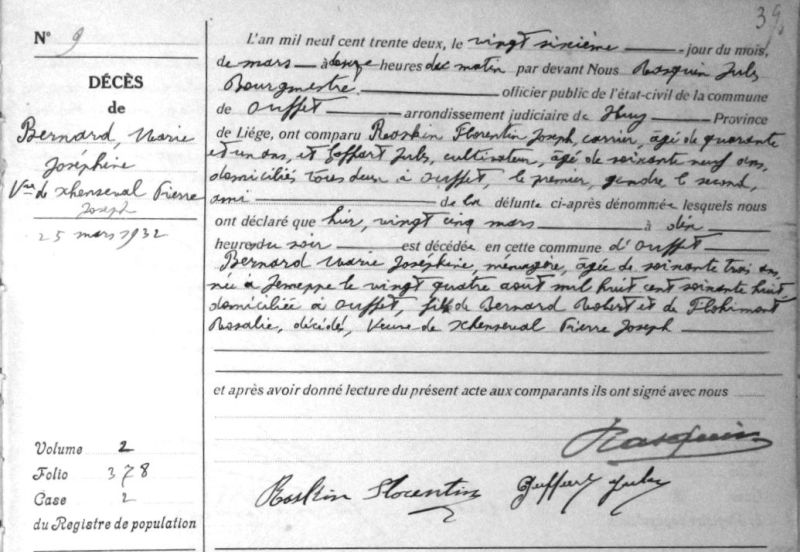 39.
N° 9
DÉCÈS
de
Bernard, Marie
Joséphine
Vve de Xhenseval Pierre
Joseph
25 mars 1932
Volume 2
Folio 378
Case 2
du Registre de population
L'an mil neuf cent trente deux, le vingt sixième jour du mois,
de mars à onze heures du matin par devant Nous Rasquin Jules
Bourgmestre officier public de l'état-civil de la commune
de Ouffet arrondissement judiciaire de Huy Province
de Liége, ont comparu Raskin Florentin Joseph, carrier, âgé de quarante
et un ans, et Jules, cultivateur, âgé de soixante neuf ans,
domiciliés tous deux à Ouffet, le premier, gendre le second,
ami de la défunte ci-après dénommée lesquels nous
ont déclaré que hier, vingt cinq mars à dix
heures du soir est décédée en cette commune d'Ouffet
Bernard Marie Joséphine, ménagère, âgée de soixante trois ans,
née à Jemeppe le vingt quatre août mil huit cent soixante huit,
domiciliée à Ouffet, fille de Bernard Robert et de Flohimont
Rosalie, décédés, Veuve de Xhenseval Pierre Joseph
et après avoir donné lecture du présent acte aux comparants ils ont signé avec nous
Rasquin
Raskin Florentin Jules